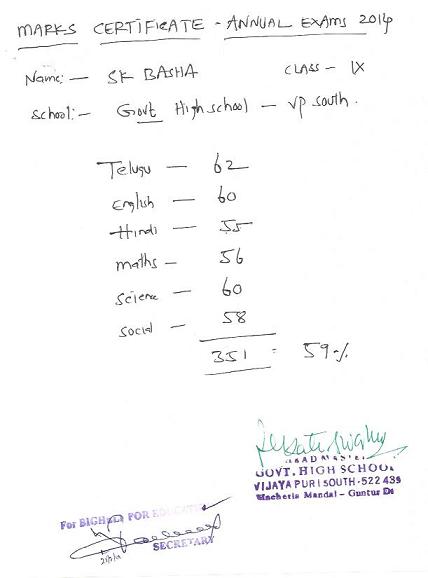 MARKS CERTIFICATE - ANNUAL EXAMS 2014
Name:- SK BASHA CLASS - IX
School:- Govt High school - VP south.
Telugu - 62
English - 60
Hindi - 55
maths - 56
science - 60
social - 58
351 = 59%
HEADMASTER
GOVT. HIGH SCHOOL
VIJAYA PURI SOUTH-522 439
Macherla Mandal - Guntur Dt
For BIGHELP FOR EDUCATION
SECRETARY